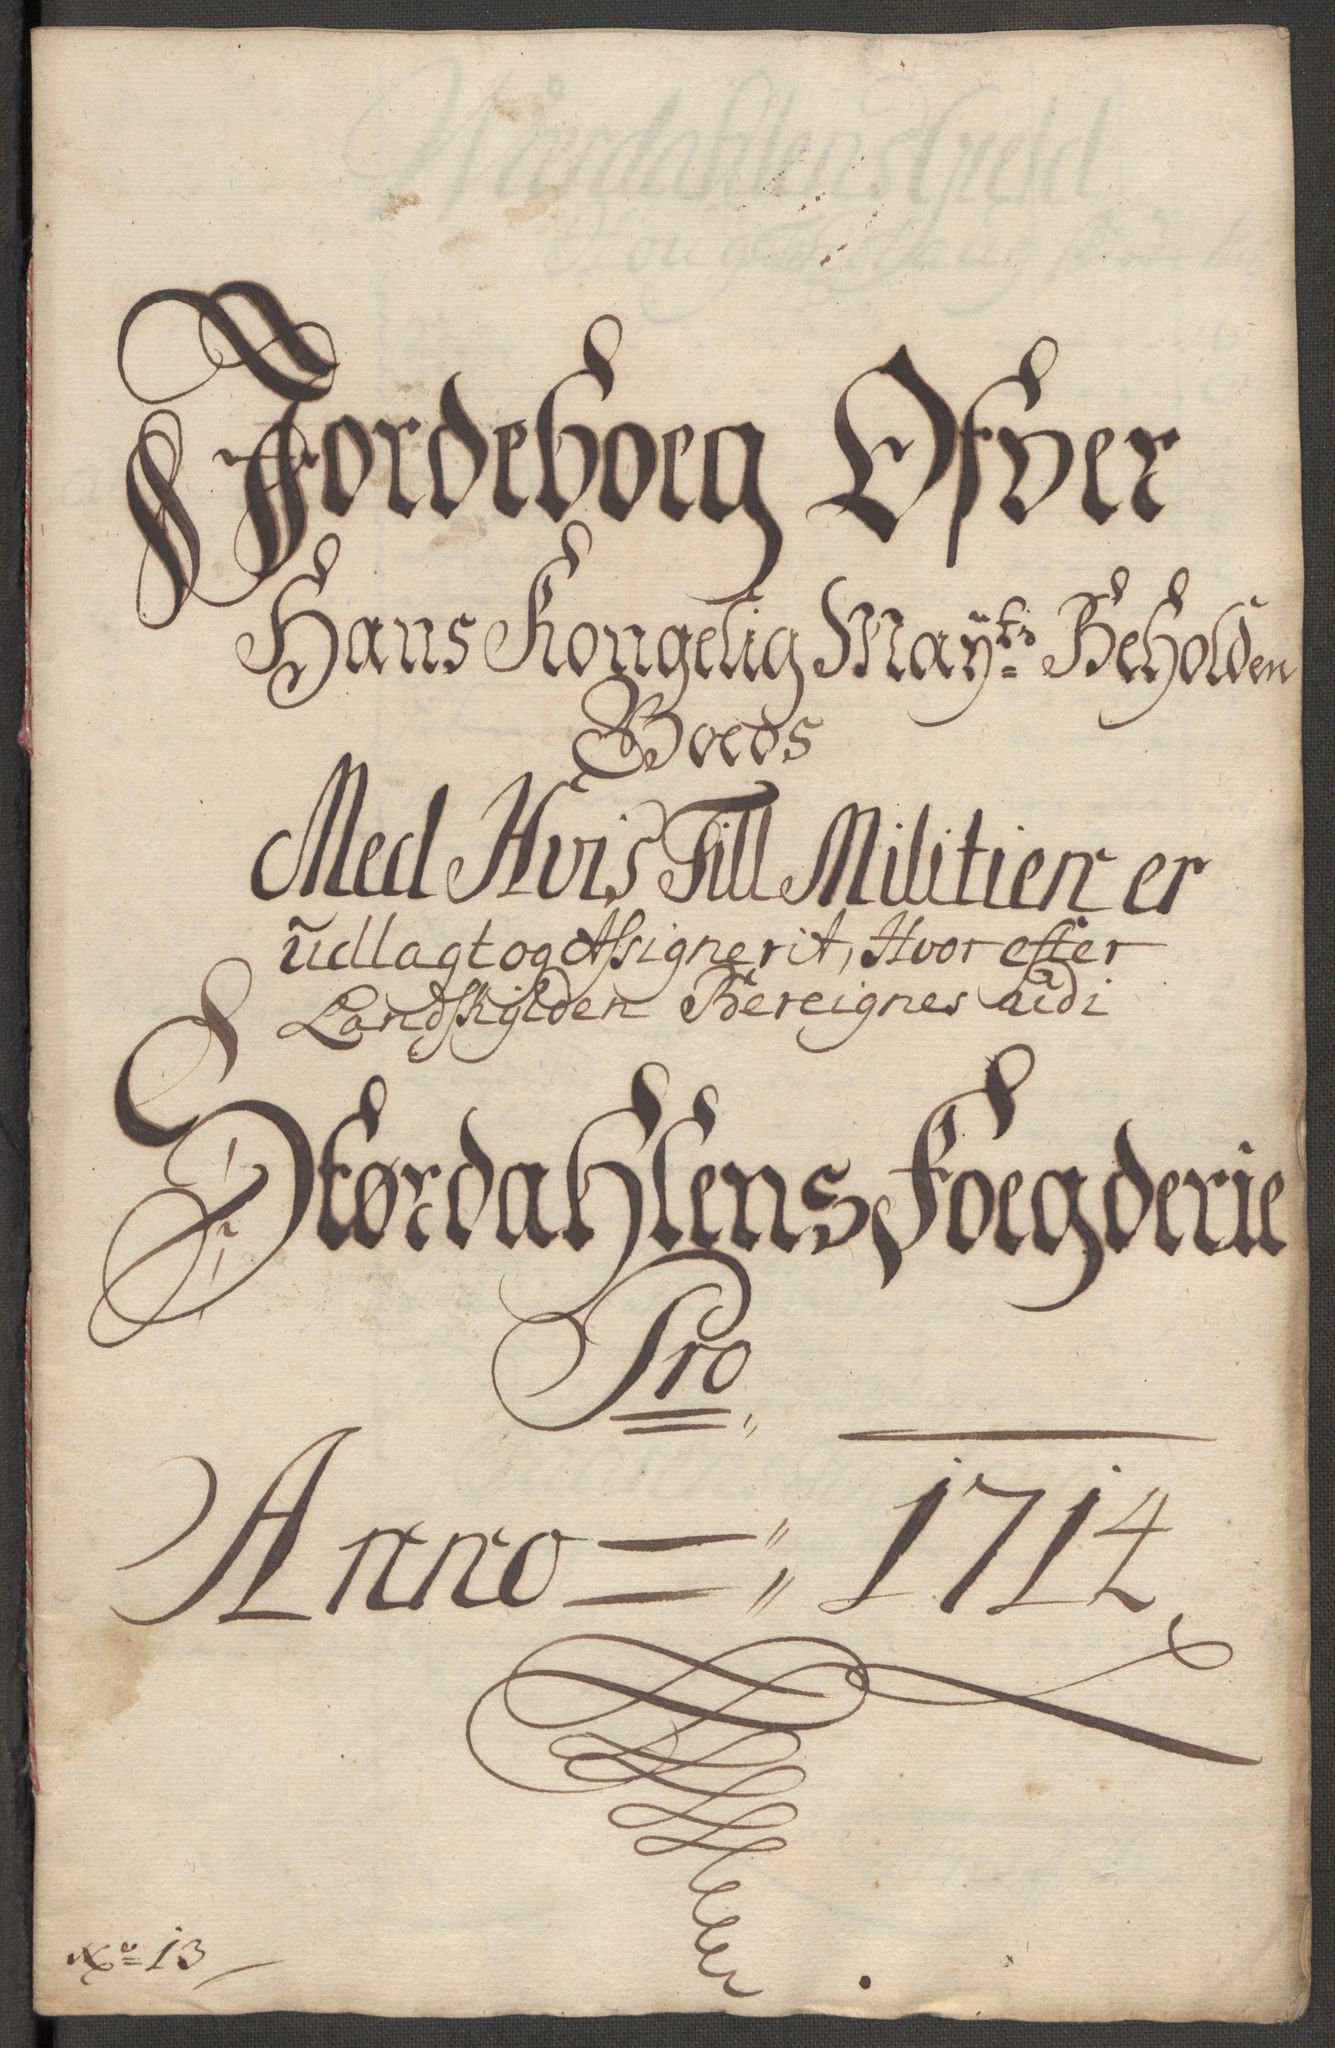 Jordeboeg Ofver
Hans Kongelig Mayts Beholden
Goeds
Med Hvis Till Militien er
udlagt og Assignerit, Hvorefter
Landskylden Bereignes udi
Størdahlens Foegderie
Pro
Anno 1714
No 13